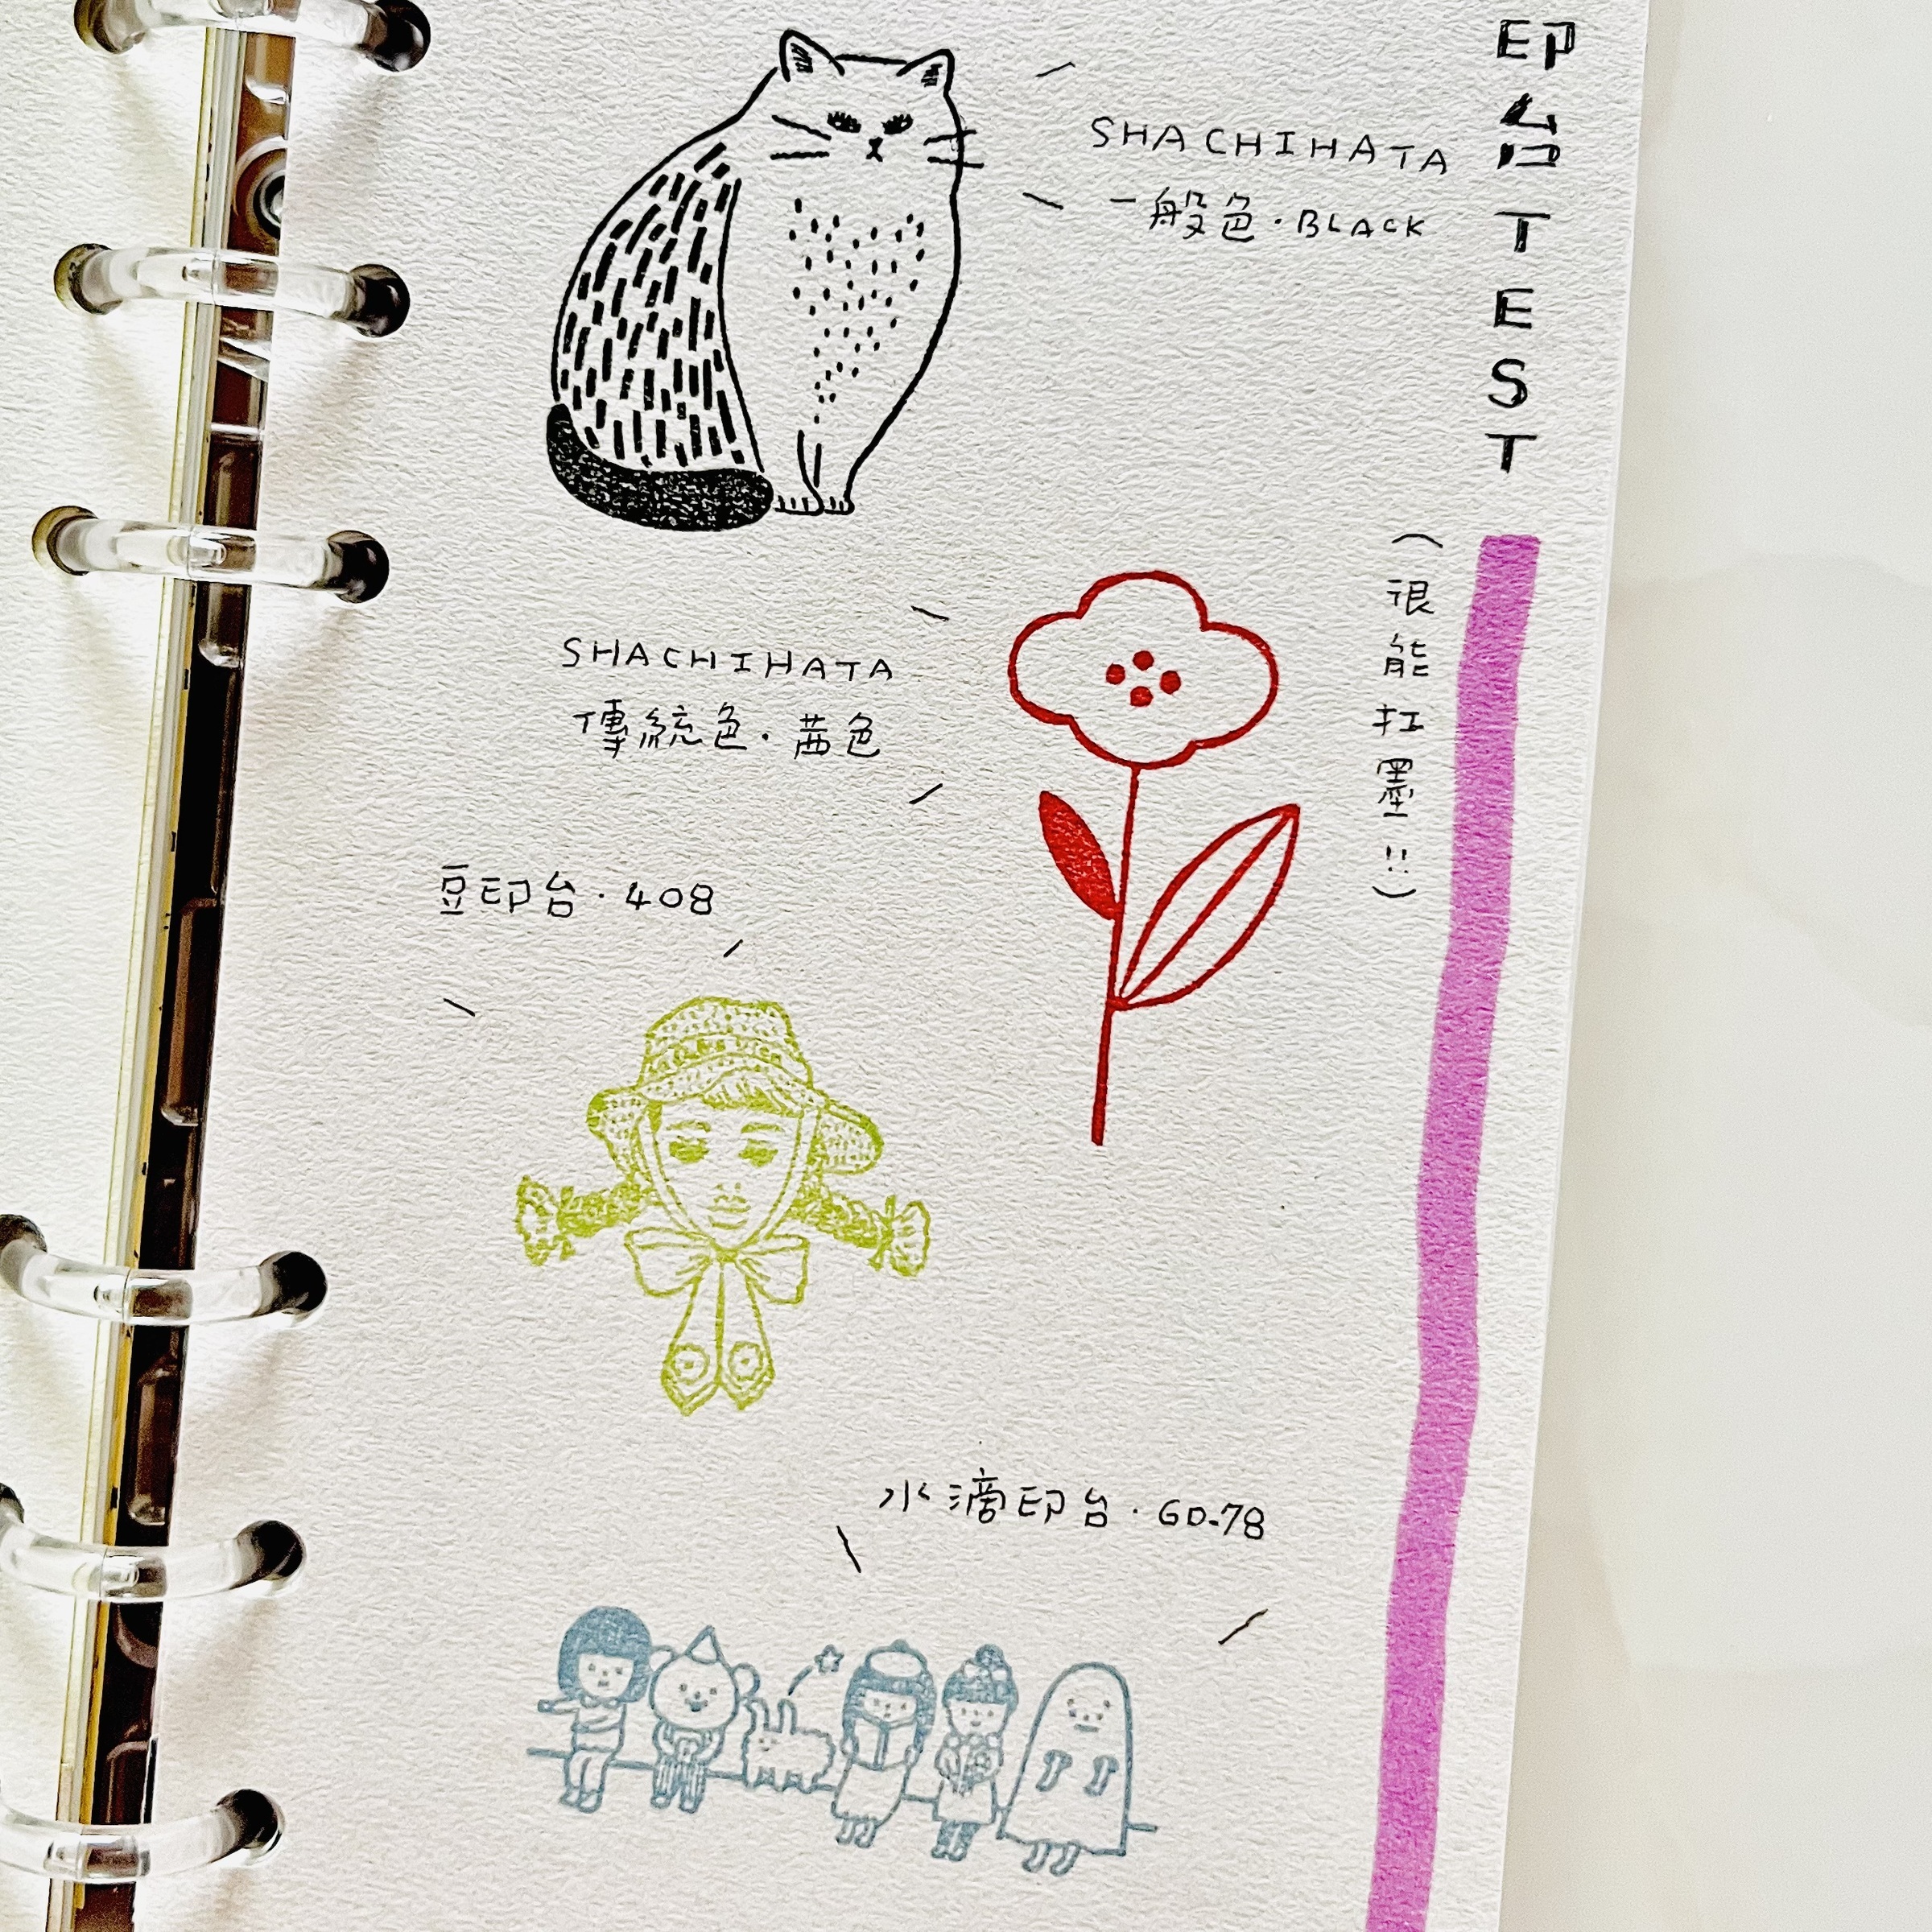 印台TEST
(很能扛墨!!)
SHACHIHATA
一般色·BLACK
SHACHIHATA
傳統色·茜色
豆印台·408
水滴印台·GD-78